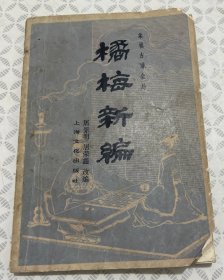 象棋古谱全局
橘梅新编
屠景明 居荣鑫 改编
上海文化出版社